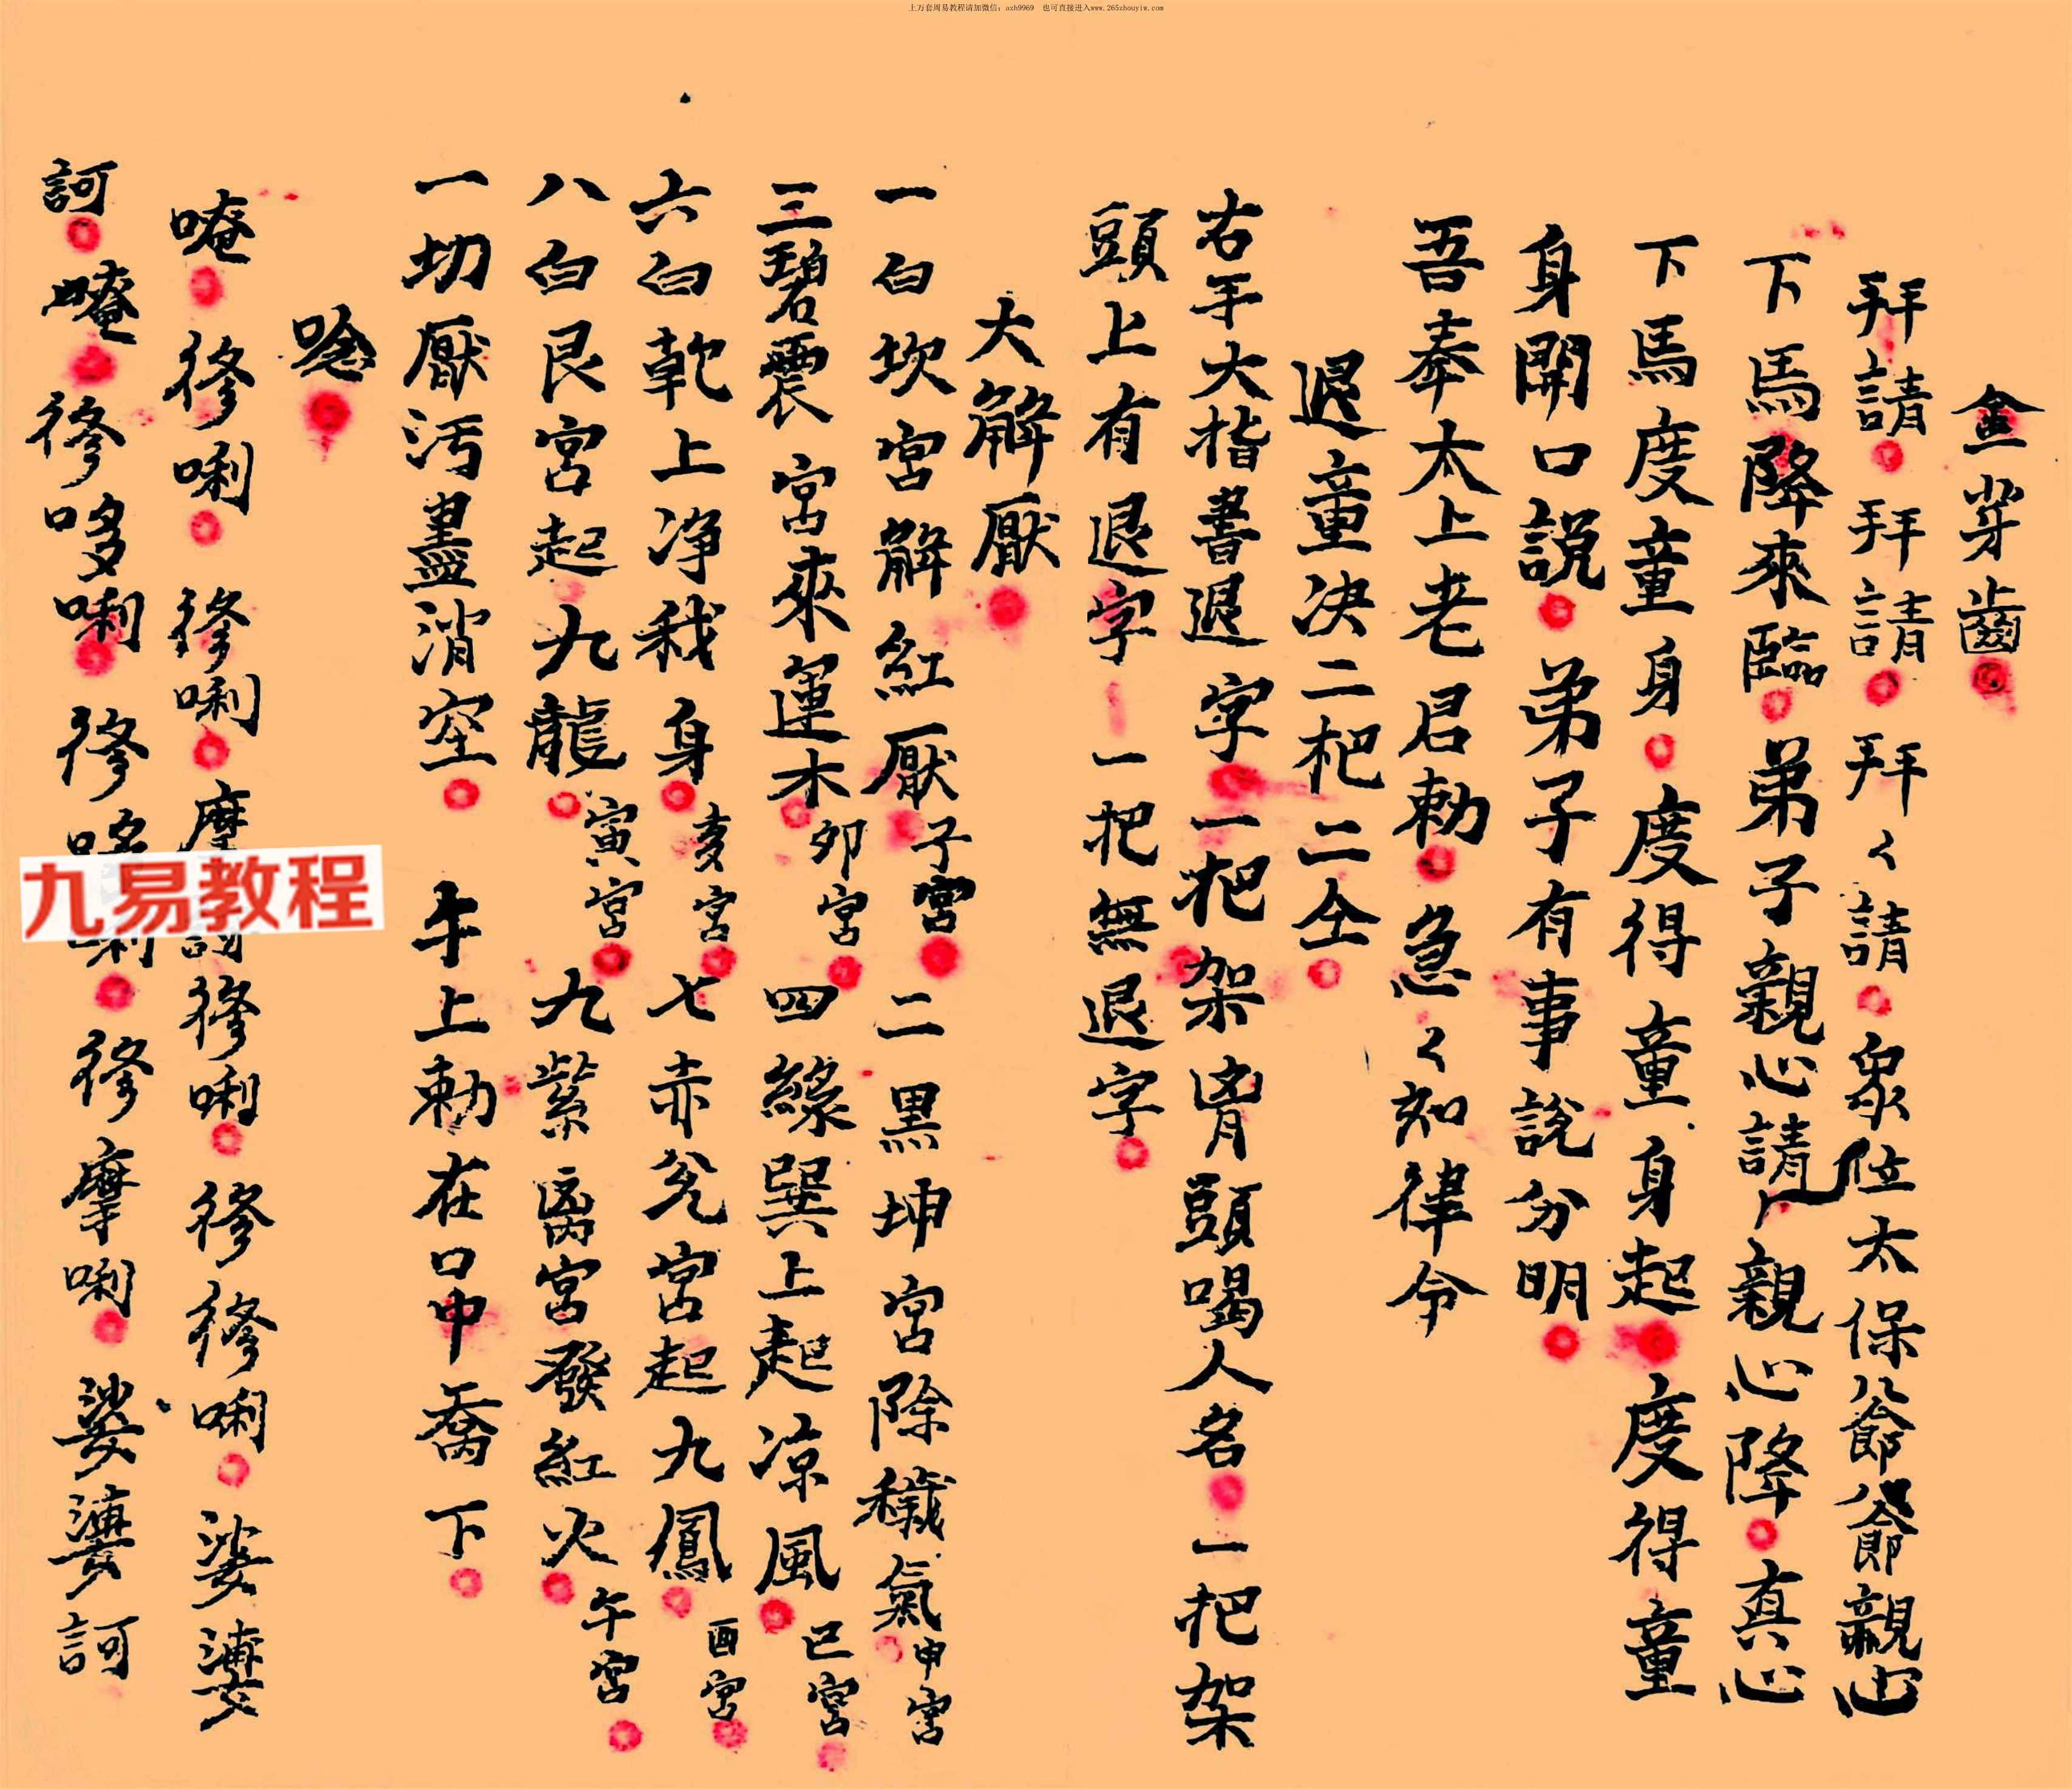 上万套周易教程请加微信：azh9969 也可直接进入www.265zhouyiw.com
金芽齒
拜請 拜請 拜〻請 衆位太保爺爺親心
下馬降來臨 弟子親心請 親心降 真心
下馬度童身 度得童身起 度得童
身開口説 弟子有事說分明
吾奉太上老君勅 急〻如律令
退童决二杷二仝
右手大指書退字 一杷架胷頭喝人名 一把架
頭上有退字 一把無退字
大解厭
一白坎宮解紅厭 子宮 二黑坤宮除穢氣 申宮
三碧震宮來運木 卯宮 四緑巽上起凉風 巳宮
六白乾上净我身 亥宮 七赤兊宮起九鳳 酉宮
八白艮宮起九龍 寅宮 九紫离宮發紅火 午宮
一切厭汚盡消空 午上勅在口中喬下
唸
唵 修唎 修唎 摩訶修唎 修修唎 娑婆
訶 唵 修哆唎 修 修摩唎 娑婆訶
九易教程